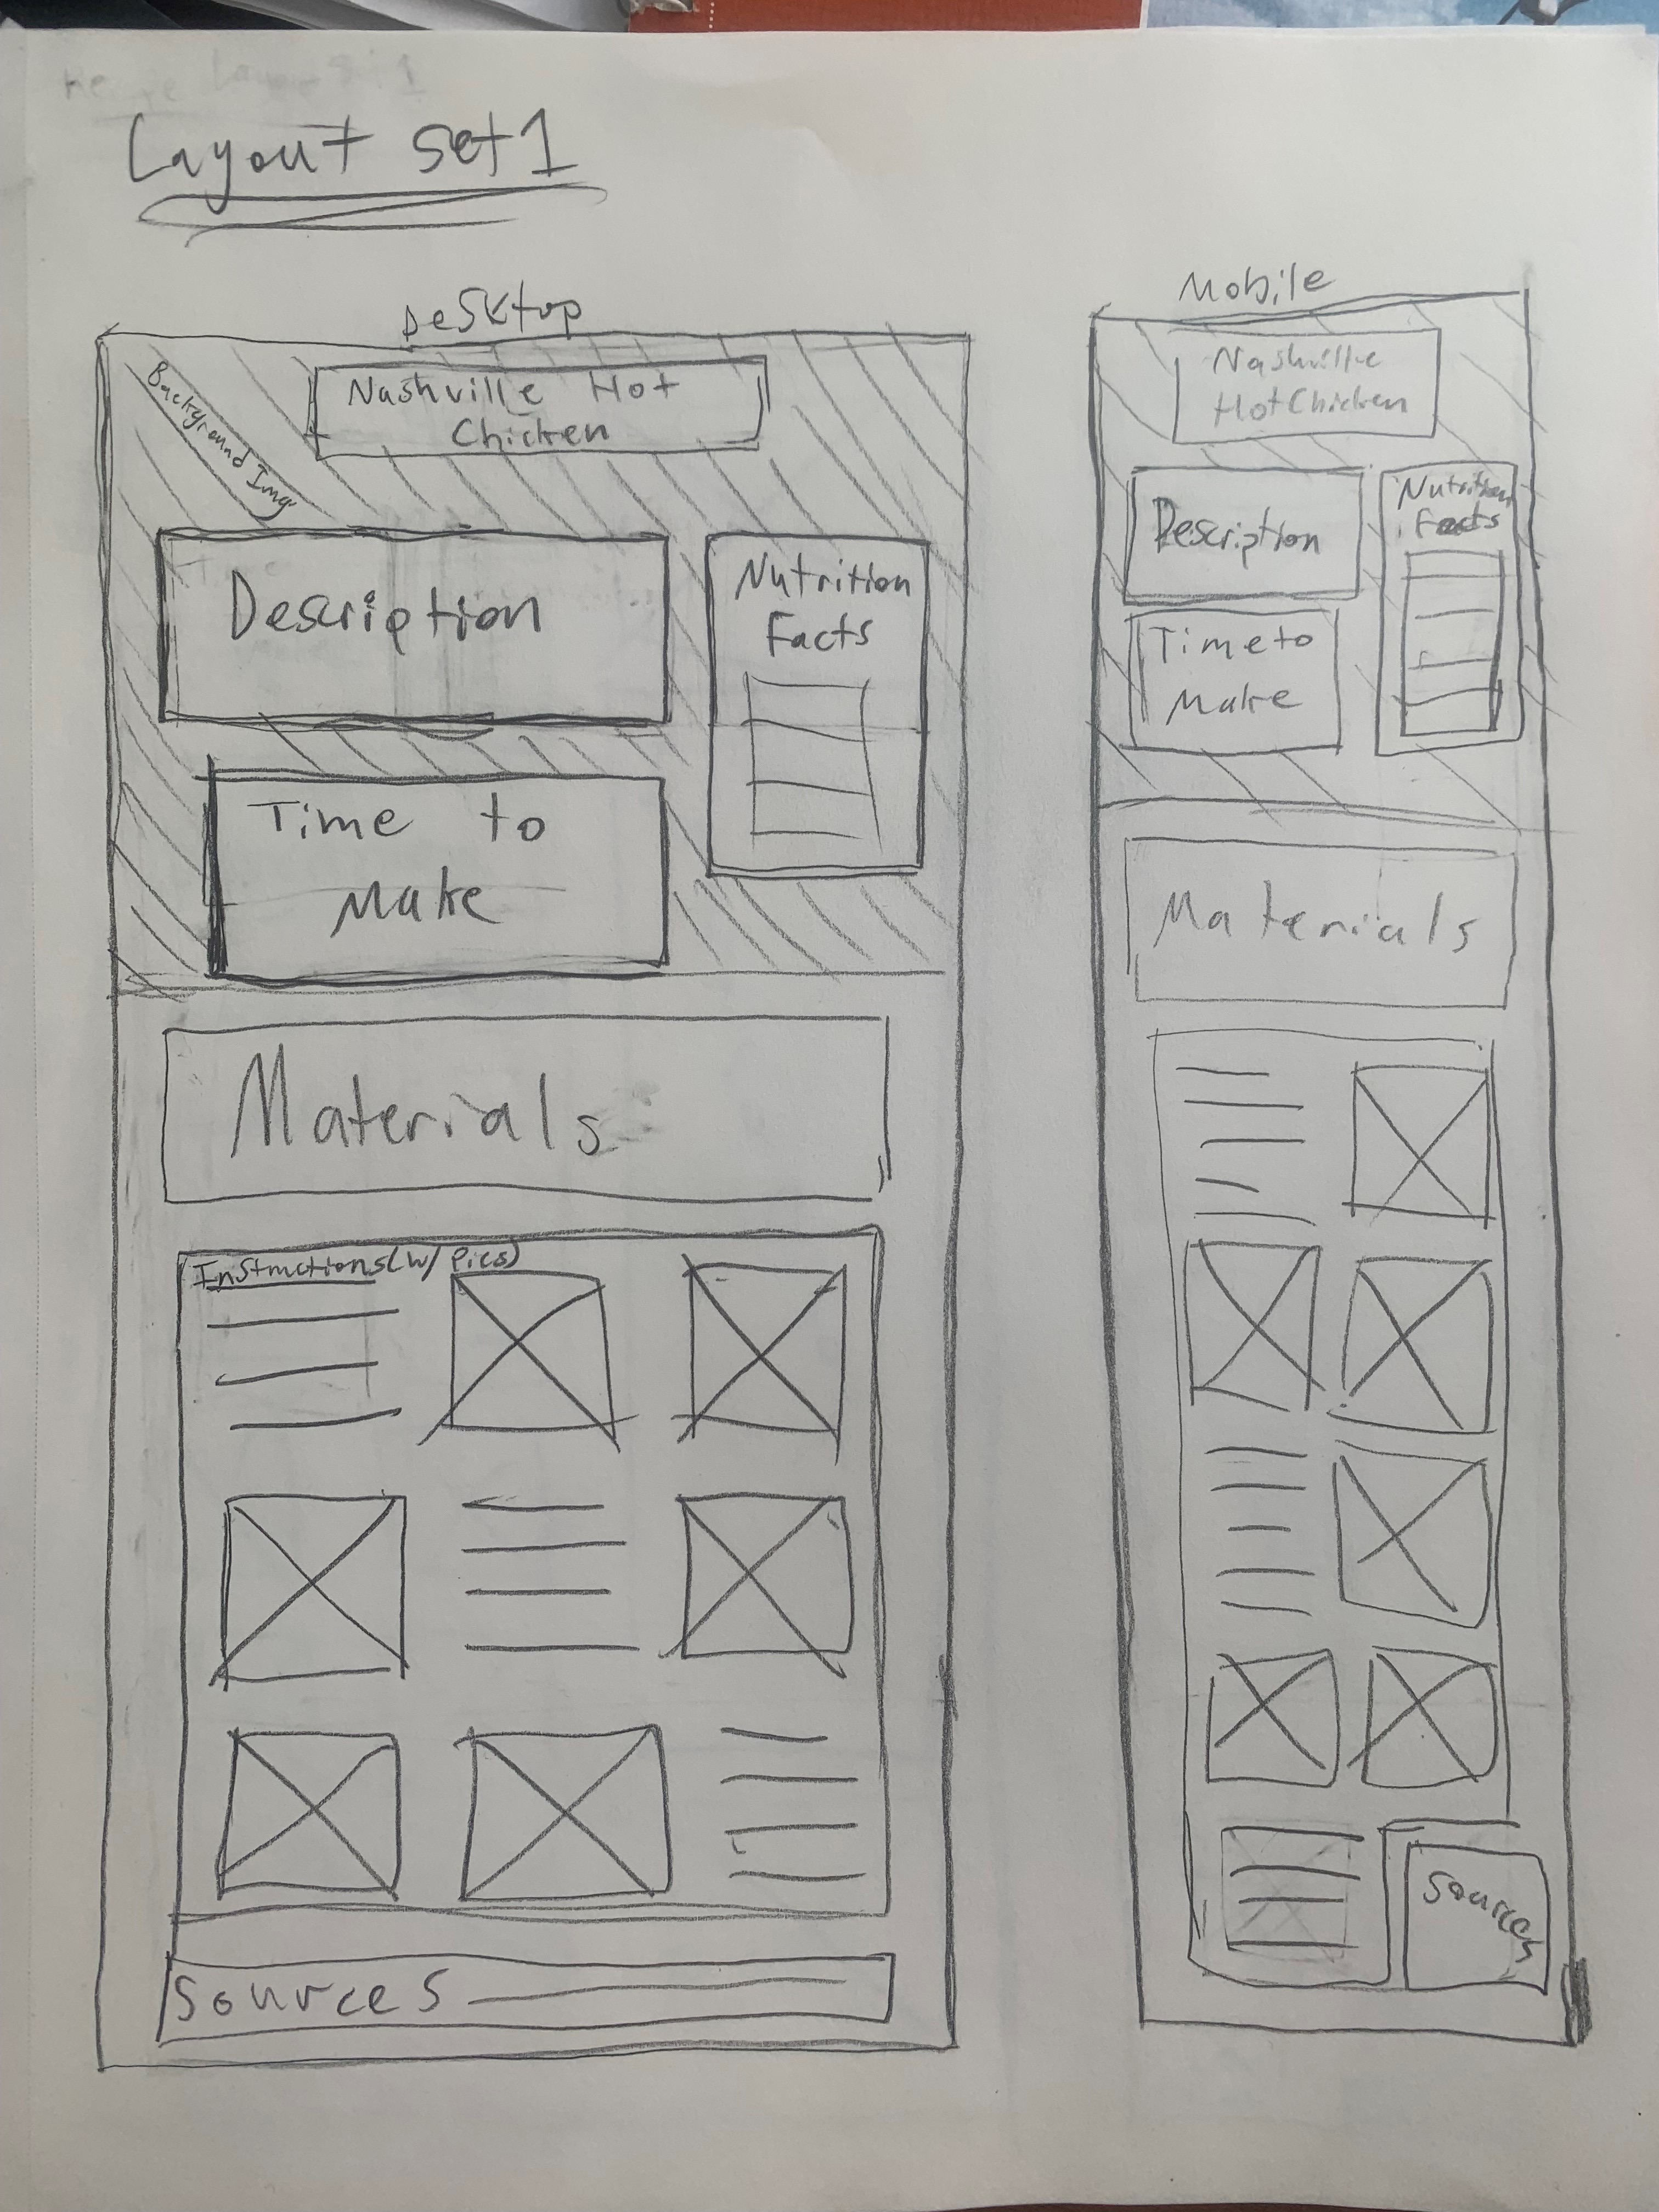 Layout Set 1
Desktop
Background Img
Nashville Hot
Chicken
Description
Nutrition
Facts
Time to
Make
Materials
Instructions (w/ Pics)
Sources
Mobile
Nashville
Hot Chicken
Description
Nutrition
Facts
Time to
Make
Materials
Sources